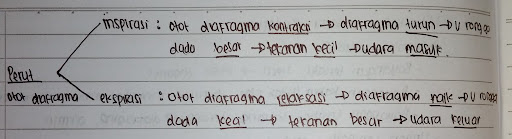 inspirasi : otot diafragma kontraksi → diafragma turun → V rongga
dada besar → tekanan kecil → udara masuk.
Perut
otot diafragma
ekspirasi : otot diafragma relaksasi → diafragma naik → V rongga
dada kecil → tekanan besar → udara keluar